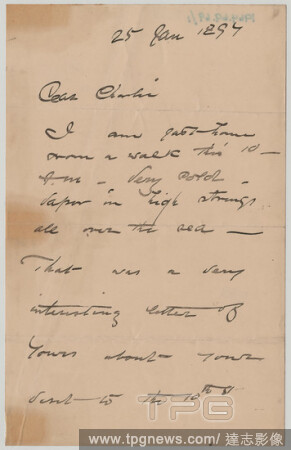 25 Jan 1894
Dear Charlie
I am just home
from a walk this 10
a.m. – Very cold –
Vapor in high strings
all over the sea –
That was a very
interesting letter of
Yours about your
visit to the 10th &
TPG
www.tpgnews.com/ 達志影像